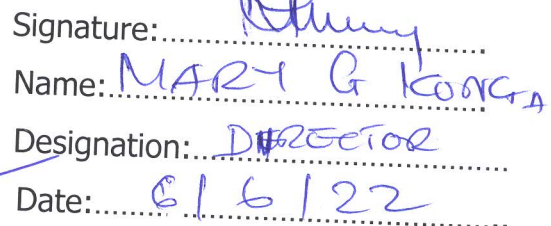 Signature:
Name: MARY G KONGA
Designation: DIRECTOR
Date: 6/6/22